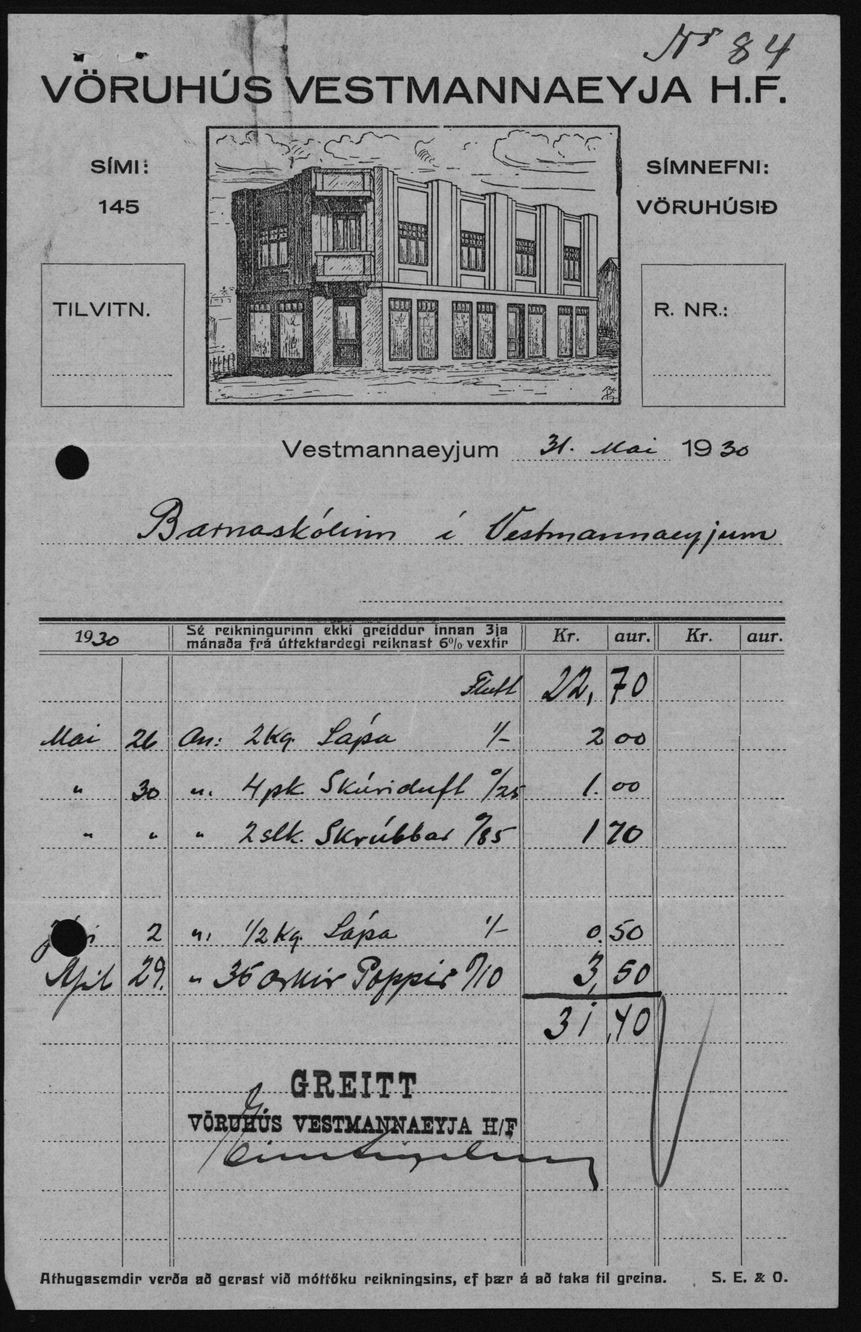 Nr 84
VÖRUHÚS VESTMANNAEYJA H.F.
SÍMI:
145
SÍMNEFNI:
VÖRUHÚSIÐ
TILVITN.
R. NR.:
Vestmannaeyjum 31. Mai 1930
Barnaskólinn í Vestmannaeyjum
1930 Sé reikningurinn ekki greiddur innan 3ja mánaða frá úttektardegi reiknast 6% vextir Kr. aur. Kr. aur.
Flutt 22,70
Mai 26 An: 2 kg. Sápa 1/- 2 00
" 30 " 4 pk Skúriduft 0/25 1.00
" " " 2 stk. Skrúbbar 0/85 1 70
2 " 1/2 kg. Sápa 1/- 0.50
Apil 29. " 35 arkir Pappír 0/10 3,50
31,40
GREITT
VÖRUHÚS VESTMANNAEYJA H/F
Athugasemdir verða að gerast við móttöku reikningsins, ef þær á að taka til greina. S. E. & O.